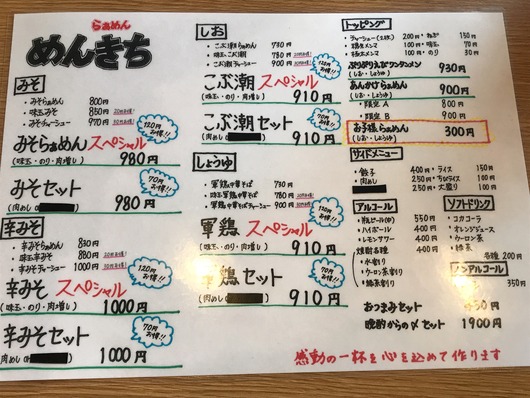 らぁめん
めんきち
みそ
・みそらぁめん 800円
・味玉みそ 850円
・みそチャーシュー 970円
120円お得!!
みそらぁめんスペシャル
(味玉・のり・肉増し) 980円
70円お得!!
みそセット
(肉めし 980円
辛みそ
・辛みそらぁめん 830円
・味玉辛みそ 880円
・辛みそチャーシュー 1000円
120円お得!!
辛みそスペシャル
(味玉・のり・肉増し) 1000円
70円お得!!
辛みそセット
(肉めし 1000円
しお
・こぶ潮らぁめん 730円
・味玉こぶ潮 780円
・こぶ潮チャーシュー 900円
120円お得!!
こぶ潮スペシャル
(味玉・のり・肉増し) 910円
70円お得!!
こぶ潮セット
(肉めし 910円
しょうゆ
・軍鶏中華そば 730円
・味玉軍鶏中華そば 780円
・軍鶏中華そばチャーシュー 900円
120円お得!!
軍鶏スペシャル
(味玉・のり・肉増し) 910円
70円お得!!
軍鶏セット
(肉めし 910円
トッピング
・チャーシュー(2枚) 200円
・ねぎ 150円
・味玉 70円
・のり 30円
ぷりぷりえびワンタンメン
(しお・しょうゆ) 930円
あんかけらぁめん
(しお・しょうゆ) 900円
・限定A 800円
・限定B 900円
お子様らぁめん
(しお・しょうゆ) 300円
サイドメニュー
・餃子 400円
・肉めし
・ライス 150円
・大盛り 100円
アルコール
・瓶ビール(中)
・ハイボール 400円
・レモンサワー 400円
・焼酎各種 400円
・水割り
・ウーロン茶割り
・緑茶割り
ソフトドリンク
・コカコーラ
・オレンジジュース
・ウーロン茶
・緑茶
各種 200円
ノンアルコール
350円
おつまみセット
晩酌からの〆セット 1900円
感動の一杯を心を込めて作ります